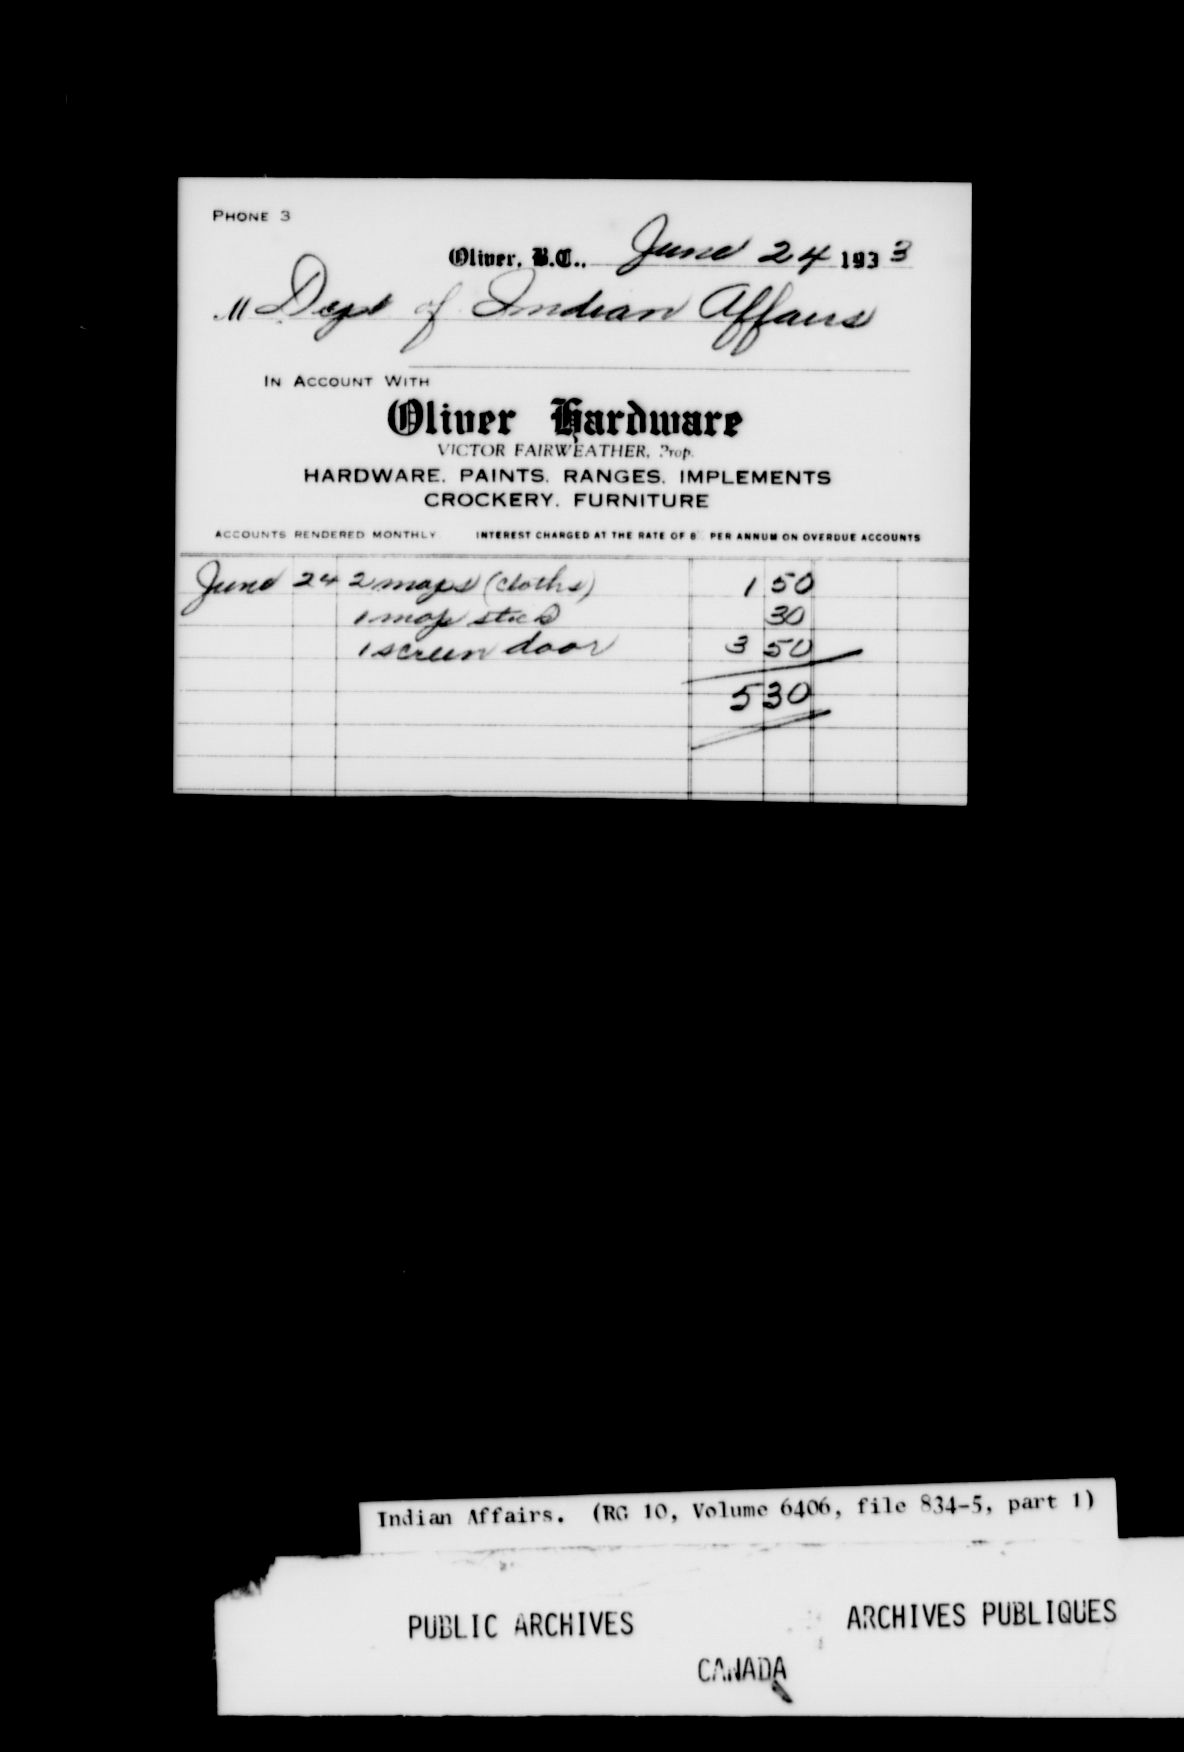 PHONE 3
Oliver, B.C., June 24 1933
M Dept of Indian Affairs
IN ACCOUNT WITH
Oliver Hardware
VICTOR FAIRWEATHER, Prop.
HARDWARE, PAINTS, RANGES, IMPLEMENTS
CROCKERY, FURNITURE
ACCOUNTS RENDERED MONTHLY INTEREST CHARGED AT THE RATE OF 8 PER ANNUM ON OVERDUE ACCOUNTS
June 24 2 mops (cloths) 1 50
1 mop stick 30
1 screen door 3 50
5 30
Indian Affairs. (RG 10, Volume 6406, file 834-5, part 1)
PUBLIC ARCHIVES ARCHIVES PUBLIQUES
CANADA